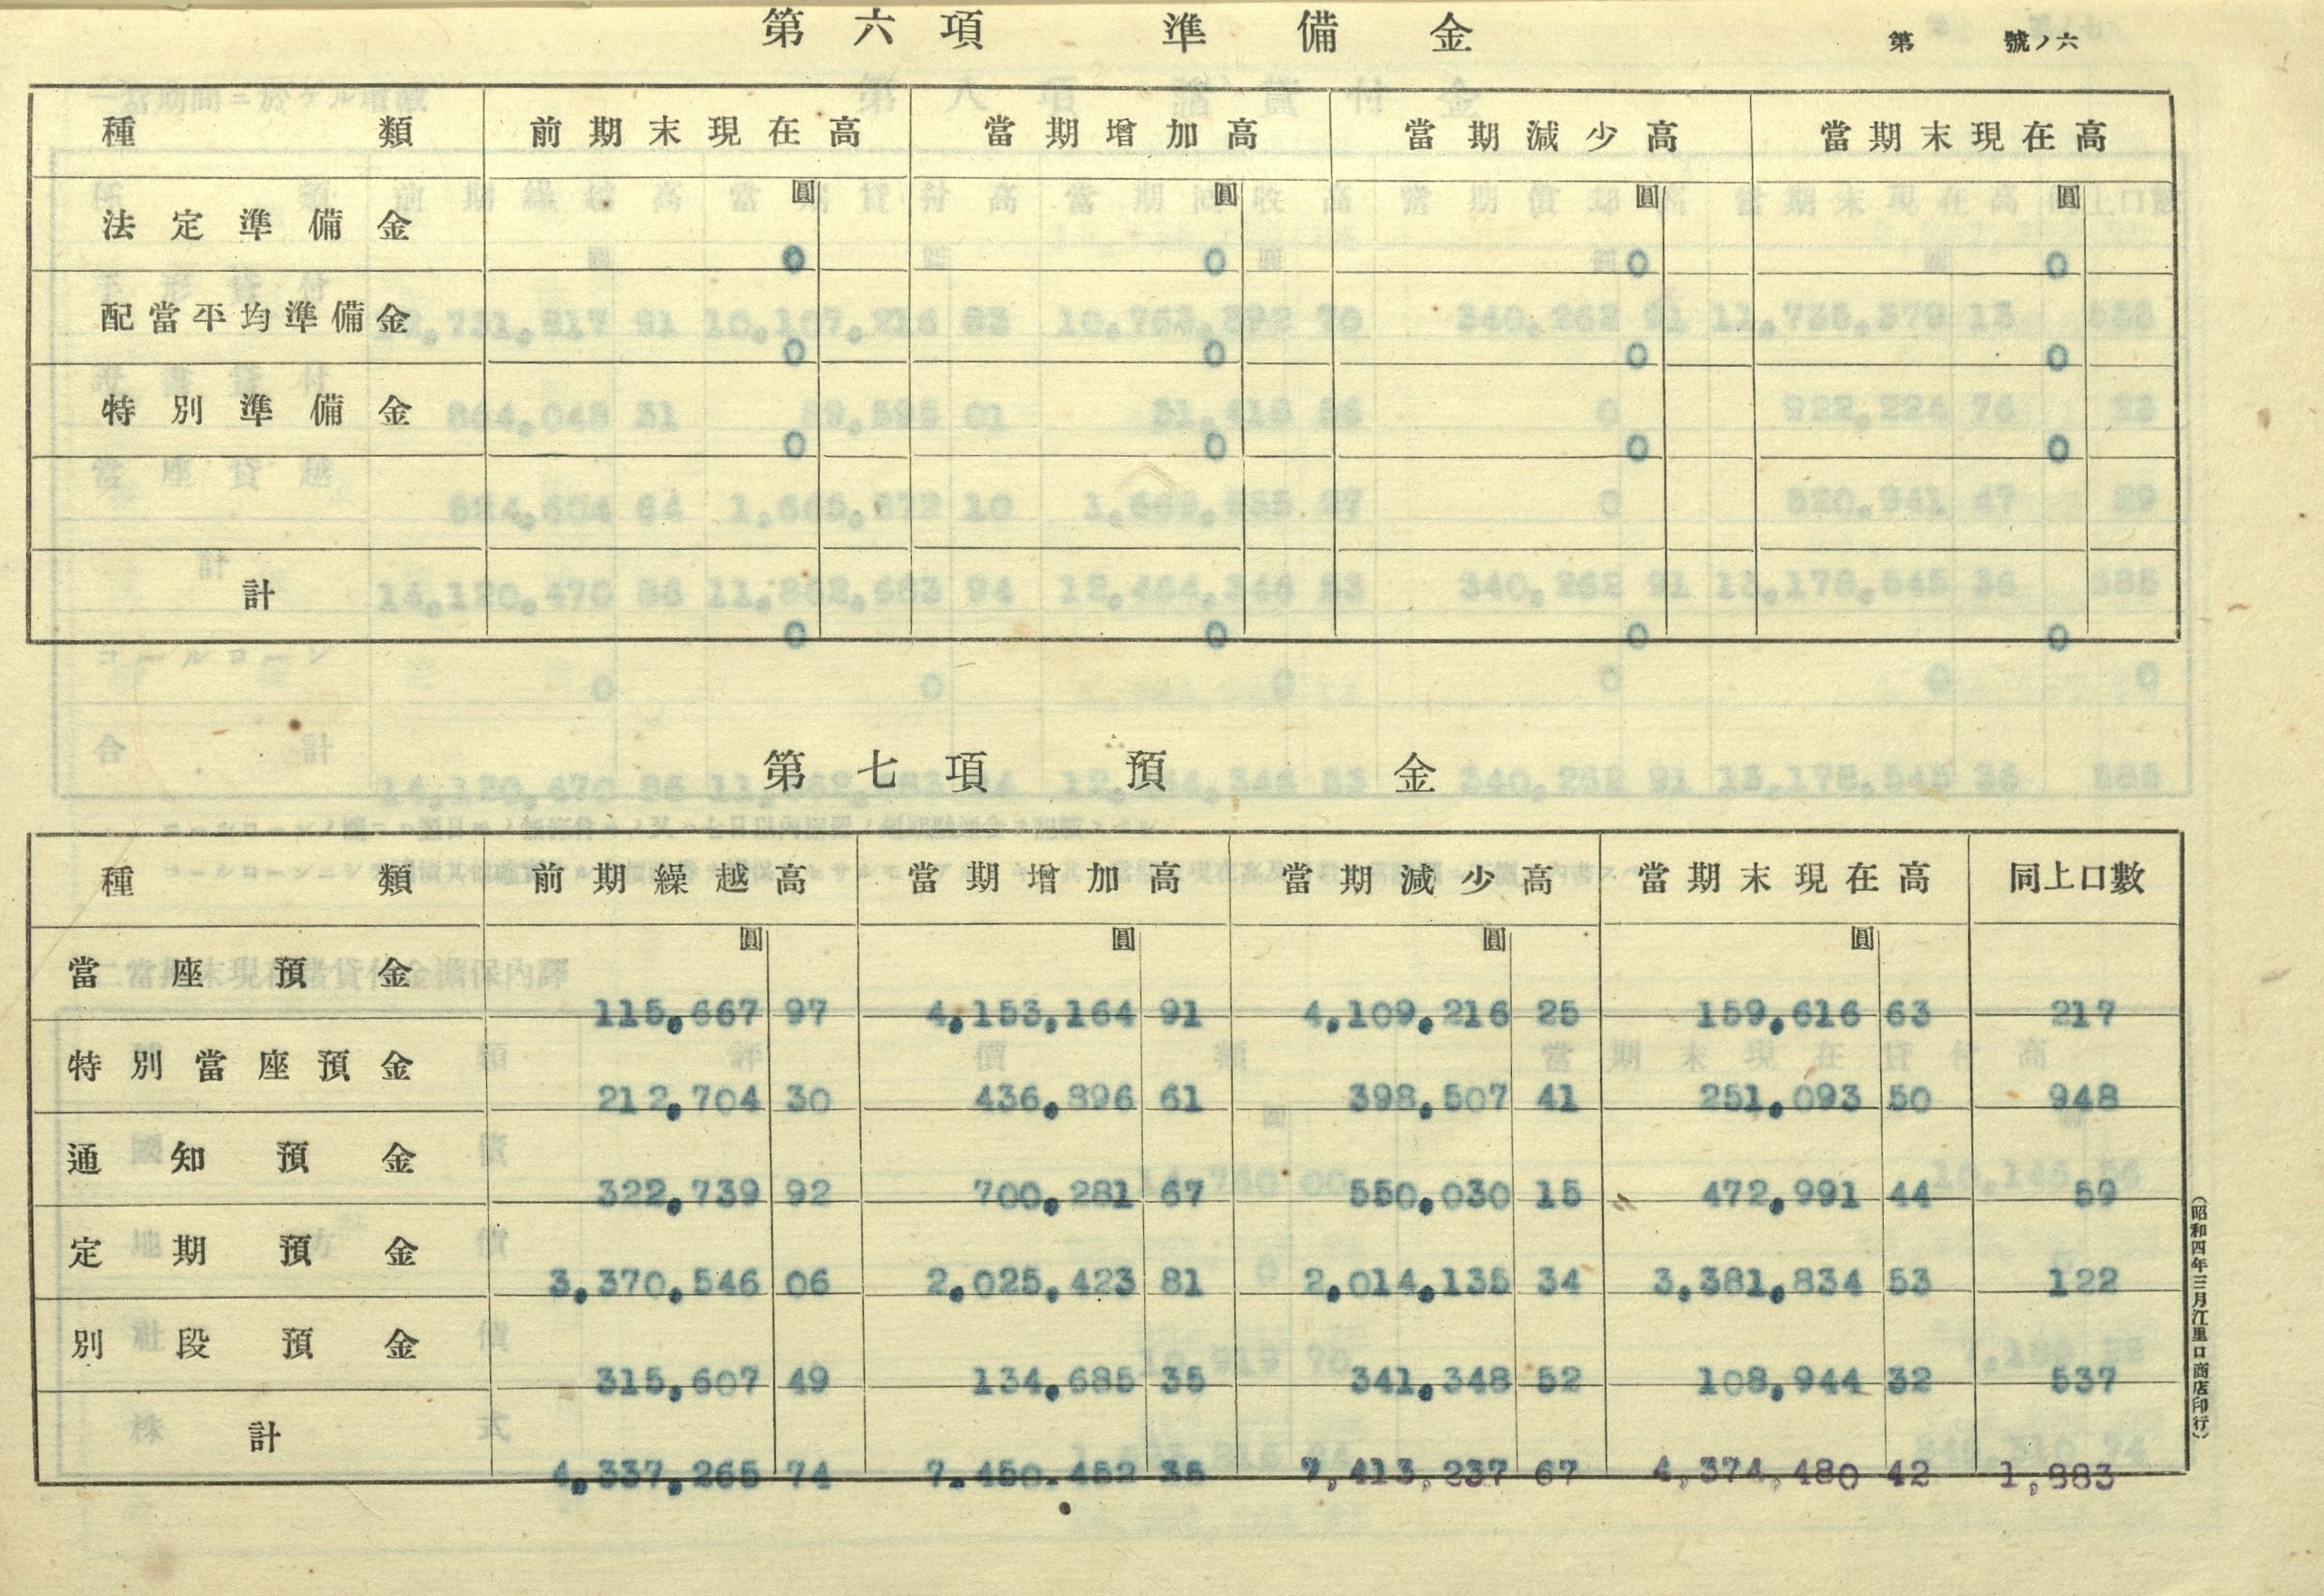 第六項 準備金
第 號ノ六
種類 前期末現在高 當期增加高 當期減少高 當期末現在高
圓 圓 圓 圓
法定準備金 0 0 0 0
配當平均準備金 0 0 0 0
特別準備金 0 0 0 0
計 0 0 0 0
第七項 預金
種類 前期繰越高 當期增加高 當期減少高 當期末現在高 同上口數
圓 圓 圓 圓
當座預金 115,667 97 4,153,164 91 4,109,216 25 159,616 63 217
特別當座預金 212,704 30 436,896 61 398,507 41 251,093 50 948
通知預金 322,739 92 700,281 67 550,030 15 472,991 44 59
定期預金 3,370,546 06 2,025,423 81 2,014,135 34 3,381,834 53 122
別段預金 315,607 49 134,685 35 341,348 52 108,944 32 537
計 4,337,265 74 7.450.452 35 7,413,237 67 4,374,480 42 1,883
(昭和四年三月江里口商店印行)